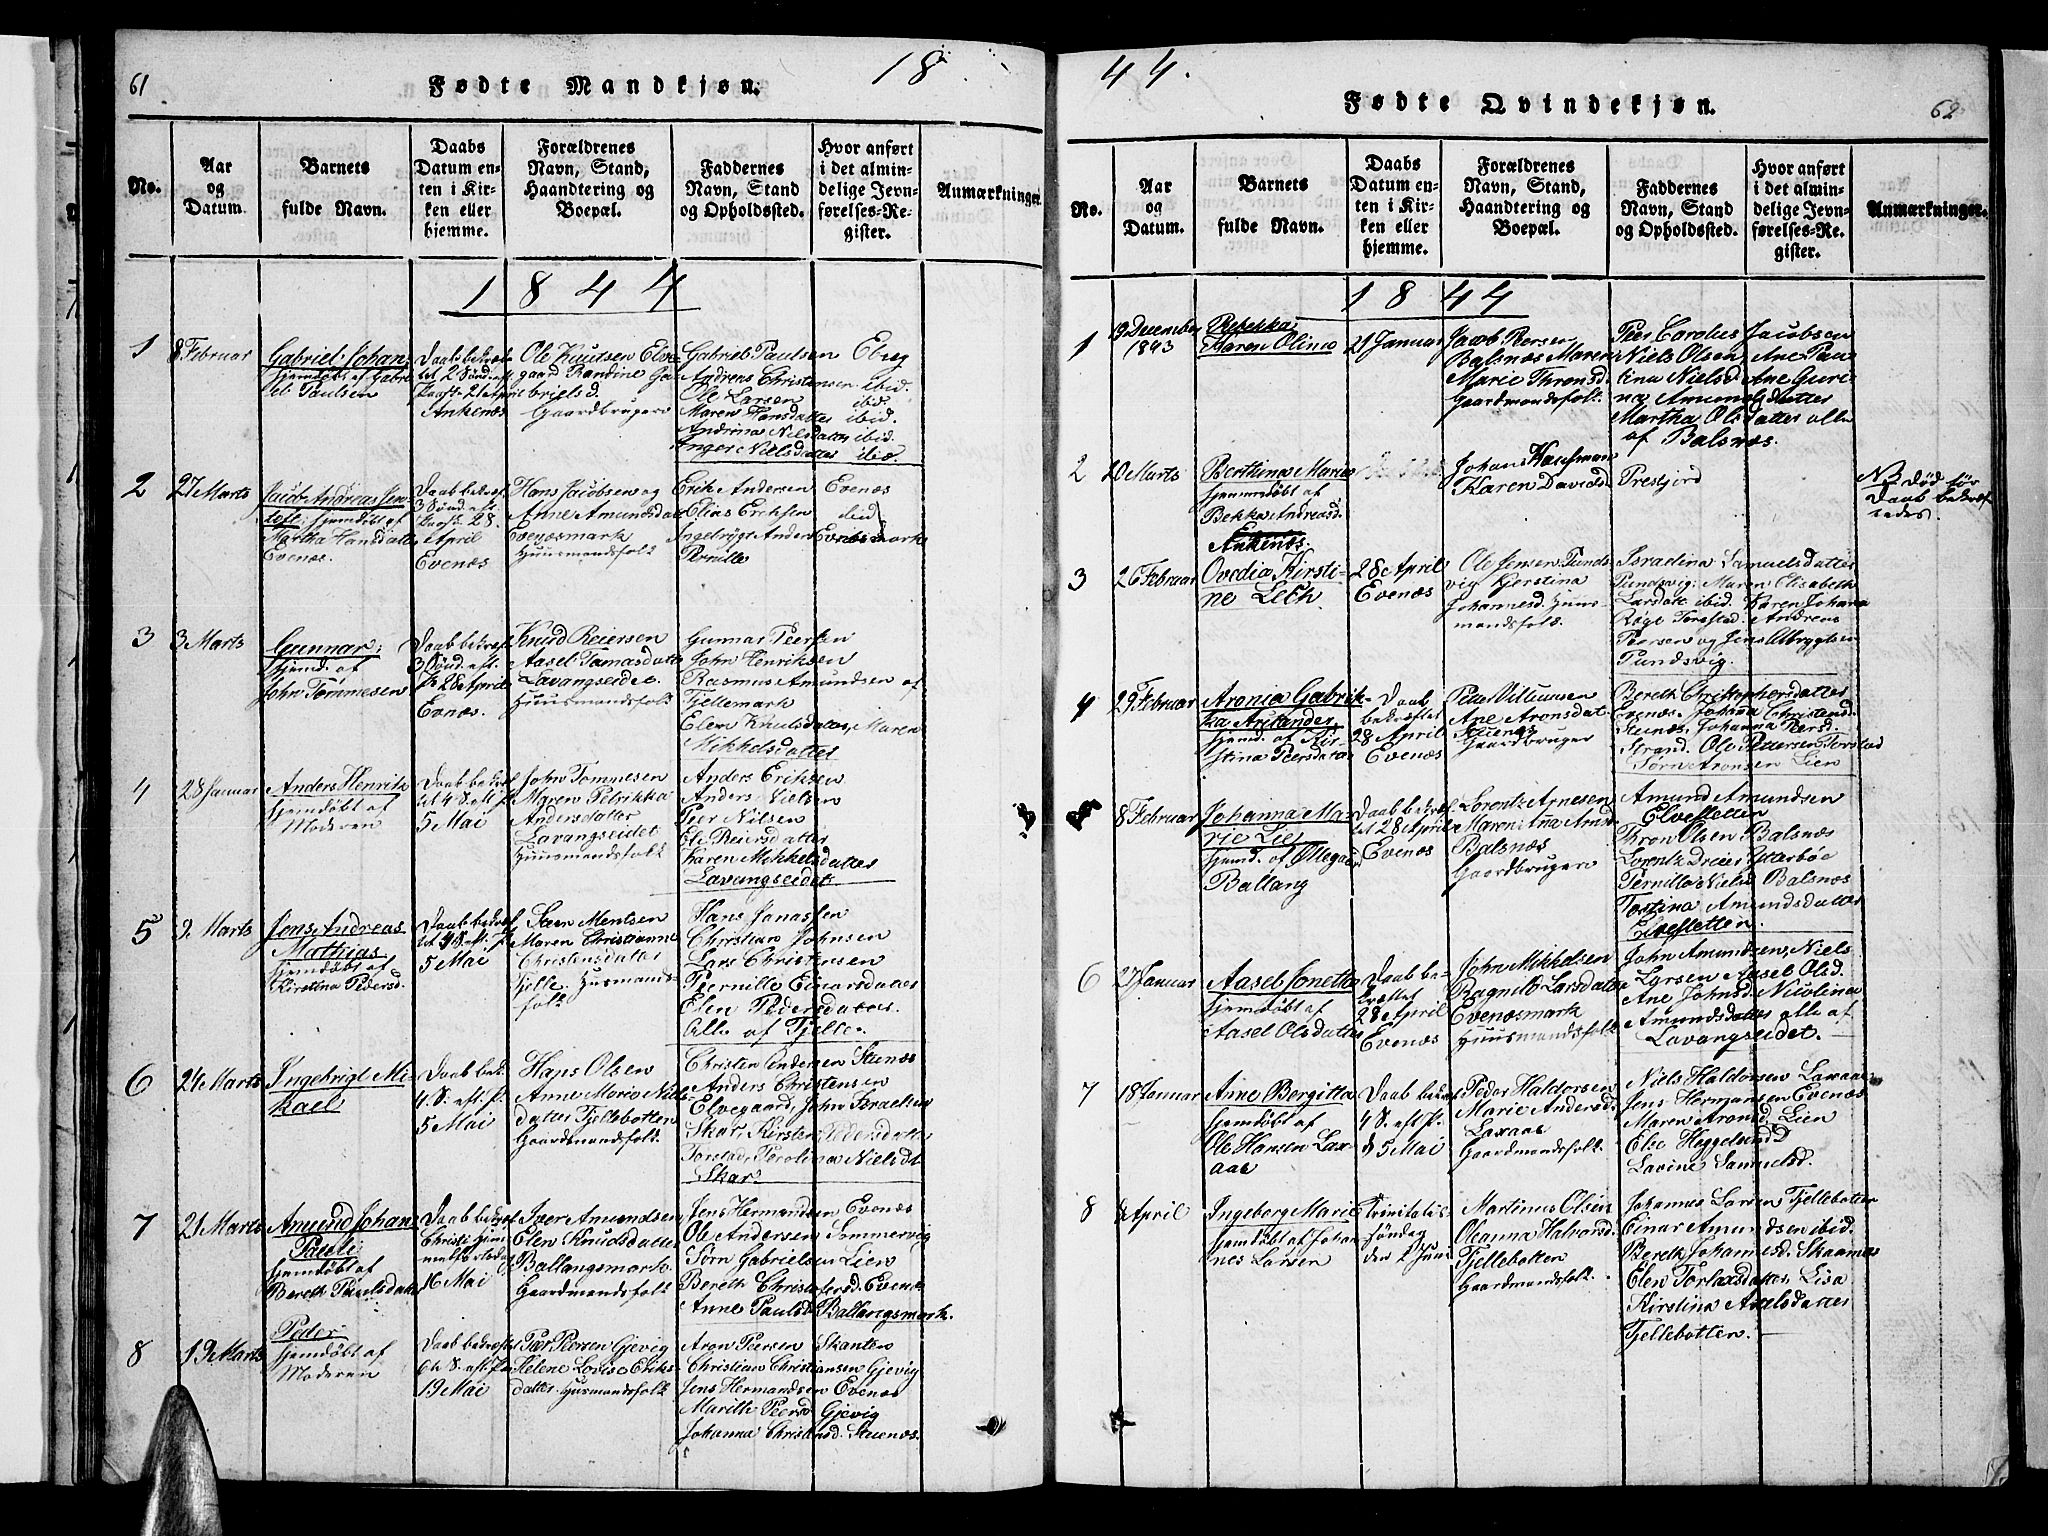 61
Fødte Mandkjøn.
18
No.
Aar
og
Datum.
Barnets
fulde Navn.
Daabs
Datum en-
ten i Kir-
ken eller
hjemme.
Forældrenes
Navn, Stand,
Haandtering og
Boepæl.
Faddernes
Navn, Stand
og Opholdssted.
Hvor anført
i det almin-
delige Jevn-
førelses-Re-
gister.
Anmærkninger.
1844
1
8 Februar
Gabriel Johan
hjemdøbt af Gabri
Paulsen
21 April
Ankenes
Ole Knutsen Elve
gaard Bandine Ga
brielsd.
Gaardbrugere
Gabriel Paulsen
Andreas Christensen ibid.
Ole Larsen ibid.
Maren Hansdatter ibid.
Andrina Nilsdatter ibid.
Inger Nielsdatter ibid.
2
27 Marts
Jacob Andreas Jen-
hjemdøbt af
Martha Hansdatter
Evenæs
Daab bekræf
3 Sønd. eft.
28
April
Evenæs
Hans Jacobsen og
Anne Amundsdat
Evenæsmark
Huusmandsfolk
Erik Andersen Evenæs
Elias Eriksen ibid
Pernille
3
3 Marts
Gunnar,
hjemd. af
John Tommesen
Daab bekræf
3 Sønd. eft.
28 April
Evenæs.
Knud Reiersen
Aasel Tomasdatter
Lavangseidet
Huusmandsfolk
Gunnar Peersen
John Henriksen
Rasmus Amundsen af
Fjellemark
Elen Knutsdatter, Maren
Mikkelsdatter
4
28 Januar
Anders Henrik
hjemdøbt af
Moderen
Daab bekræf
tet 4 S. eft. p.
5 Mai
John Tommesen
Maren Petrikka
Andersdatter
Lavangseidet
Huusmandsfolk
Anders Eriksen
Anders Nielsen
Peer Nilsen
Ele Reiersdatter
Karen Mikkelsdatter
Lavangseidet
5
9 Marts
Jens Andreas
Mathias
hjemdøbt af
Kirstina Pedersd.
Daab bekræf
tet 4 S. eft. p.
5 Mai
Steen Mentsen
Maren Christianne
Christensdatter
Fjelle. Husmands-
folk
Hans Jonassen
Christian Johnsen
Lars Christensen
Pernille Einarsdatter
Elen Pedersdatter
Alle af Fjelle.
6
24 Marts
Ingebrigt Mi-
kael
Daab bek.
4 S. eft. p.
5 Mai
Hans Olsen
Anne Marie Niels-
datter Fjellebotten
Gaardmandsfolk.
Christen Andersen Stunæs
Anders Christensen
Elvegaard, John Israelsen
Skar, Kirsten Pedersdatter
Torstad, Perolina Nielsdt
Skar
7
21 Marts
Amund Johan
Pauli
hjemdøbt af
Bereth Paulsdatter
Daab bekræf
Christi Him-
melfartsdag
16 Mai
Iver Amundsen
Elen Knudsdatter
Ballangsmark
Gaardmandsfolk
Jens Hermandsen Evenæs
Ole Andersen Sommervig
Sørn Gabrielsen Lien
Bereth Christofersd. Evenes
Anne Paulsd Ballangsmark.
8
19 Marts
Peder
hjemdøbt af
Moderen
Daab bekræftet
6te S. eft. p.
19 Mai
Peer Peersen Gjevig
Helene Lovise Eriks-
datter. Husmandsfolk
Aron Peersen Skanten
Christian Christiansen Gjevig
Jens Hermandsen Evenæs
Marith Peersd Gjevig
Johanna Christensd. Stuenes.
44.
Fødte Qvindekjøn.
62
No.
Aar
og
Datum.
Barnets
fulde Navn.
Daabs
Datum en-
ten i Kir-
ken eller
hjemme.
Forældrenes
Navn, Stand,
Haandtering og
Boepæl.
Faddernes
Navn, Stand
og Opholdssted.
Hvor anført
i det almin-
delige Jevn-
førelses-Re-
gister.
Anmærkninger.
1844
1
19 December
1843
Rebekka
Maren Olina
21 Januar
Jacob Peersen
Balsnæs Maren
Marie Thronsd.
Gaardmandsfolk.
Peer Carolius Jacobsen
Niels Olsen Ane Pau
lina Nielsd Ane Guri-
na Amundsdatter
Martha Olsdatter alle
af Balsnæs.
2
20 Marts
Berthina Maria
hjemmdøbt af
Bekka Andreasd.
Ankenæs.
Johan Kaufman
Karen Davidsd.
Præstjord
NB død før
Daab bekræf
tedes.
3
26 Februar
Ovedia Kirsti-
ne Leth
28 April
Evenæs
Ole Jensen Pund-
svig Kjerstina
Johannesd. Huus-
mandsfolk.
Israelina Samuelsdatter
Pundsvig; Maren Elisabeth
Larsdatt. ibid. Karen Johana
Torstad. Andreas
Peersen og Jens Albrygtsen
Pundsvig.
4
29 Februar
Aronia Gabrik-
ka Aristander
hjemd. af Kir-
stina Peersdatter
Daab
bekræftet
28 April
Evenæs
Peter Villumsen
Ane Aronsdat.
Stuenes
Gaardbruger
Bereth Christophersdatter
Evenæs. Johanna Christensd.
Stunæs, Johanna Peersd.
Strand. Ole Pettersen Torstad
Sørn Aronsen Lien
8 Februar
Johanna Ma-
rie Lie
hjemd. af Ollegaar
Ballang
Daab bekræf
tet 28 April
Evenæs
Lorentz Arnesen
Maren Anna Amds
Balsnæs
Gaardbrugere
Amund Amundsen
Elvesletten
Thron Olsen Balsnæs
Lorentz Dreier Ystebøe
Pernilla Nielsd Balsnæs
Tostina Amundsdatter
Elvesletten.
6
27 Januar
Aasel Jonetta
hjemdøbt af
Aasel Olsdatter
Daab be-
kræftet
28 April
Evenæs
John Mikkelsen
Ragnild Larsdatter
Evenæsmark
Huusmandsfolk
John Amundsen, Niels
Larsen Aasel Olsd.
Ane Johnsd. Nicolina
Amundsdatter alle af
Lavangseidet.
7
18 Januar
Anne Bergitta
hjemdøbt af
Ole Hansen Lax-
aae
Daab bekræf
4 S. eft. p.
d 5 Mai
Peder Haldorsen
Marie Andersd.
Laxaae
Gaardmandsfolk.
Niels Haldorsen Laxaae
Jens Hermansen Evenæs
Maren Aronsd Lien
Else Heggelund
Lavine Samuelsd.
8
April
Ingeborg Marie
hjemdøbt af Johan
nes Larsen
Trinitatis-
søndag
den 2 Juni
Martinus Olsen
Oleanna Halvorsd.
Fjellebotten
Gaardmandsfolk.
Johannes Larsen Fjellebotten
Einar Amundsen ibid.
Bereth Johannesd. Skaanæs
Elen Torlaxsdatter, Lisa
Kirstina Axelsdatter
Fjellebotten.